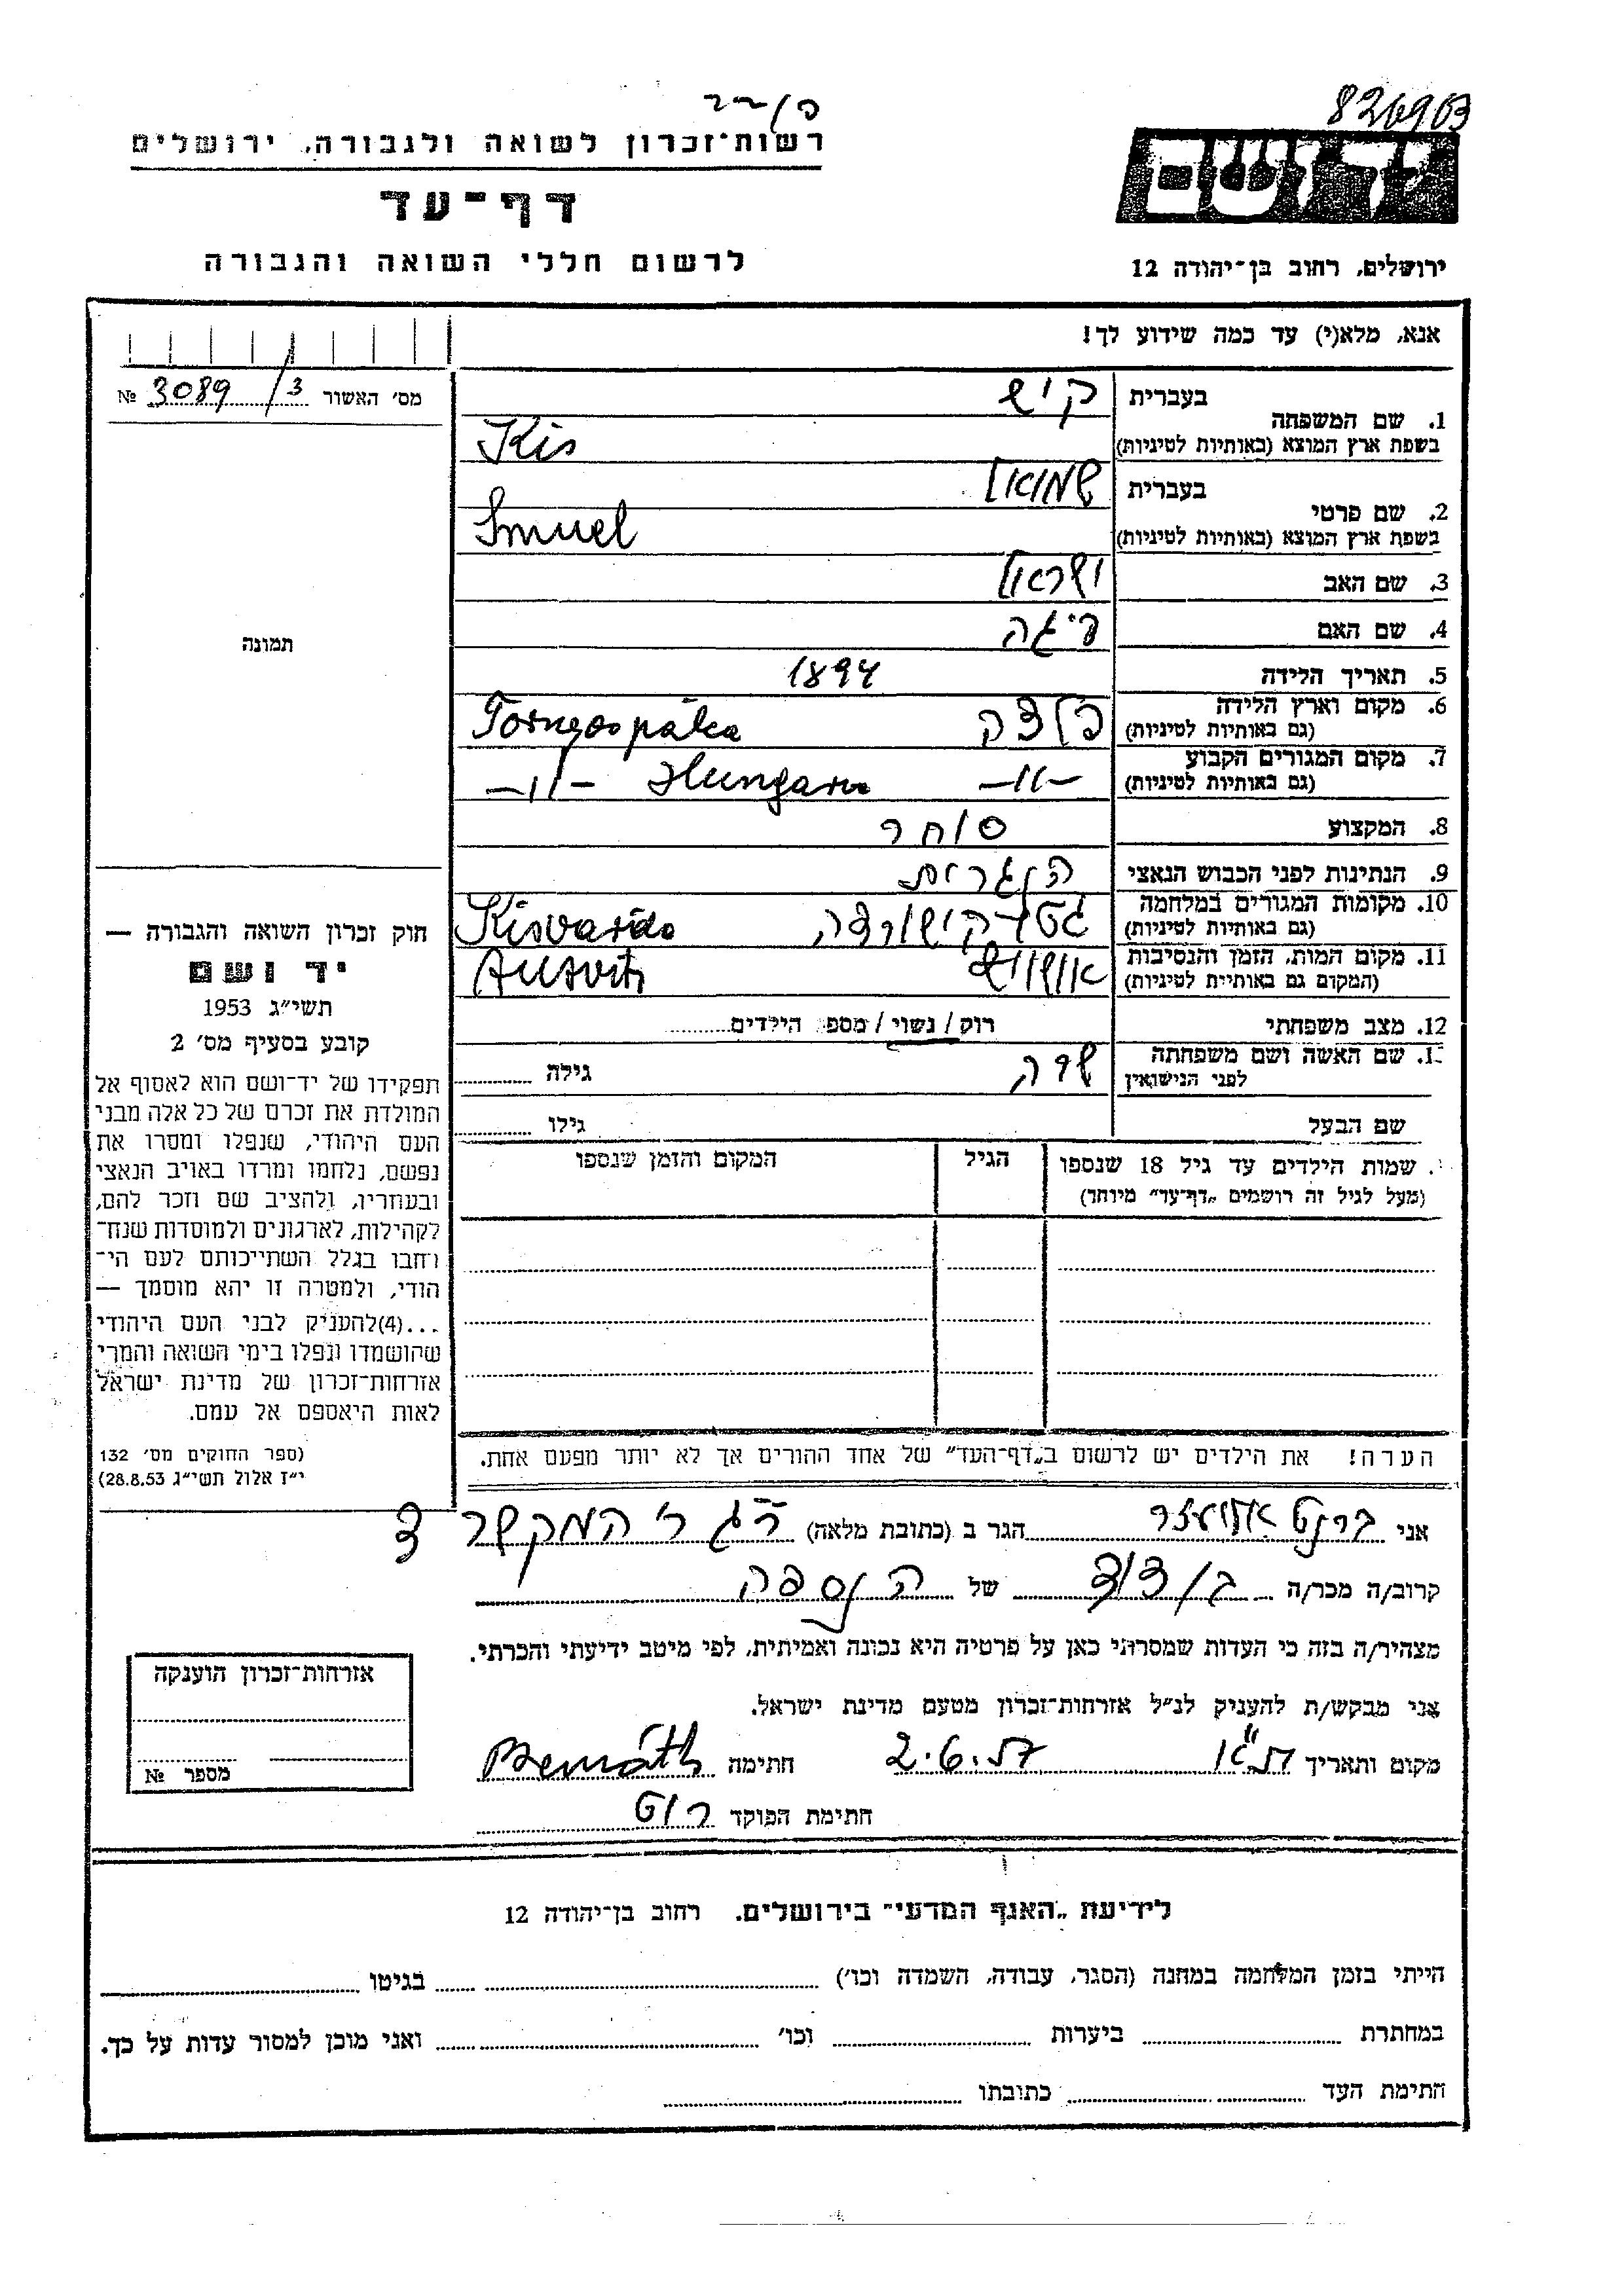 826903
רשות־זכרון לשואה ולגבורה, ירושלים
יד ושם
דף־עד
לרשום חללי השואה והגבורה
ירושלים, רחוב בן־יהודה 12
אנא, מלא(י) עד כמה שידוע לך!
מס׳ האשור 3089/3 №
1. שם המשפחה בעברית קיש
בשפת ארץ המוצא (באותיות לטיניות) Kis
2. שם פרטי בעברית שמואל
בשפת ארץ המוצא (באותיות לטיניות) Smuel
3. שם האב ישראל
4. שם האם
5. תאריך הלידה 1894
6. מקום וארץ הלידה
(גם באותיות לטיניות) Tornyospálca
7. מקום המגורים הקבוע
(גם באותיות לטיניות) —״— —״—
8. המקצוע סוחר
9. הנתינות לפני הכבוש הנאצי הונגרית
10. מקומות המגורים במלחמה
(גם באותיות לטיניות) גטו קישורדה Kisvarda
11. מקום המות, הזמן והנסיבות
(המקום גם באותיית לטיניות)
12. מצב משפחתי רוק / נשוי / מספר הילדים
שם האשה ושם משפחתה
לפני הנישואין שרה גילה
שם הבעל גילו
שמות הילדים עד גיל 18 שנספו
(מעל לגיל זה רושמים „דף־עד״ מיוחד)
הגיל
המקום והזמן שנספו
הערה! את הילדים יש לרשום ב„דף־העד״ של אחד ההורים אך לא יותר מפעם אחת.
תמונה
חוק זכרון השואה והגבורה —
יד ושם
תשי״ג 1953
קובע בסעיף מס׳ 2
תפקידו של יד־ושם הוא לאסוף אל
המולדת את זכרם של כל אלה מבני
העם היהודי, שנפלו ומסרו את
נפשם, נלחמו ומרדו באויב הנאצי
ובעוזריו, ולהציב שם וזכר להם,
לקהילות, לארגונים ולמוסדות שנח־
רחבו בגלל השתייכותם לעם הי־
הודי, ולמטרה זו יהא מוסמך —
...(4)להעניק לבני העם היהודי
שהושמדו ונפלו בימי השואה והמרי
אזרחות־זכרון של מדינת ישראל
לאות היאספם אל עמם.
(ספר החוקים מס׳ 132
י״ז אלול תשי״ג 28.8.53)
אני ברנט אליעזר הגר ב (כתובת מלאה) ר״ג ר׳ המקשר
קרוב/ה מכר/ה בן דוד של הנספה
מצהיר/ה בזה כי העדות שמסרתי כאן על פרטיה היא נכונה ואמיתית, לפי מיטב ידיעתי והכרתי.
אני מבקש/ת להעניק לנ״ל אזרחות־זכרון מטעם מדינת ישראל.
מקום ותאריך 2.6.57 חתימה Bernáth
חתימת הפוקד רוט
אזרחות־זכרון הוענקה
מספר №
לידיעת „האגף המדעי״ בירושלים. רחוב בן־יהודה 12
הייתי בזמן המלחמה במחנה (הסגר, עבודה, השמדה וכו׳) בגיטו
במחתרת ביערות וכו׳ ואני מוכן למסור עדות על כך.
חתימת העד כתובתו